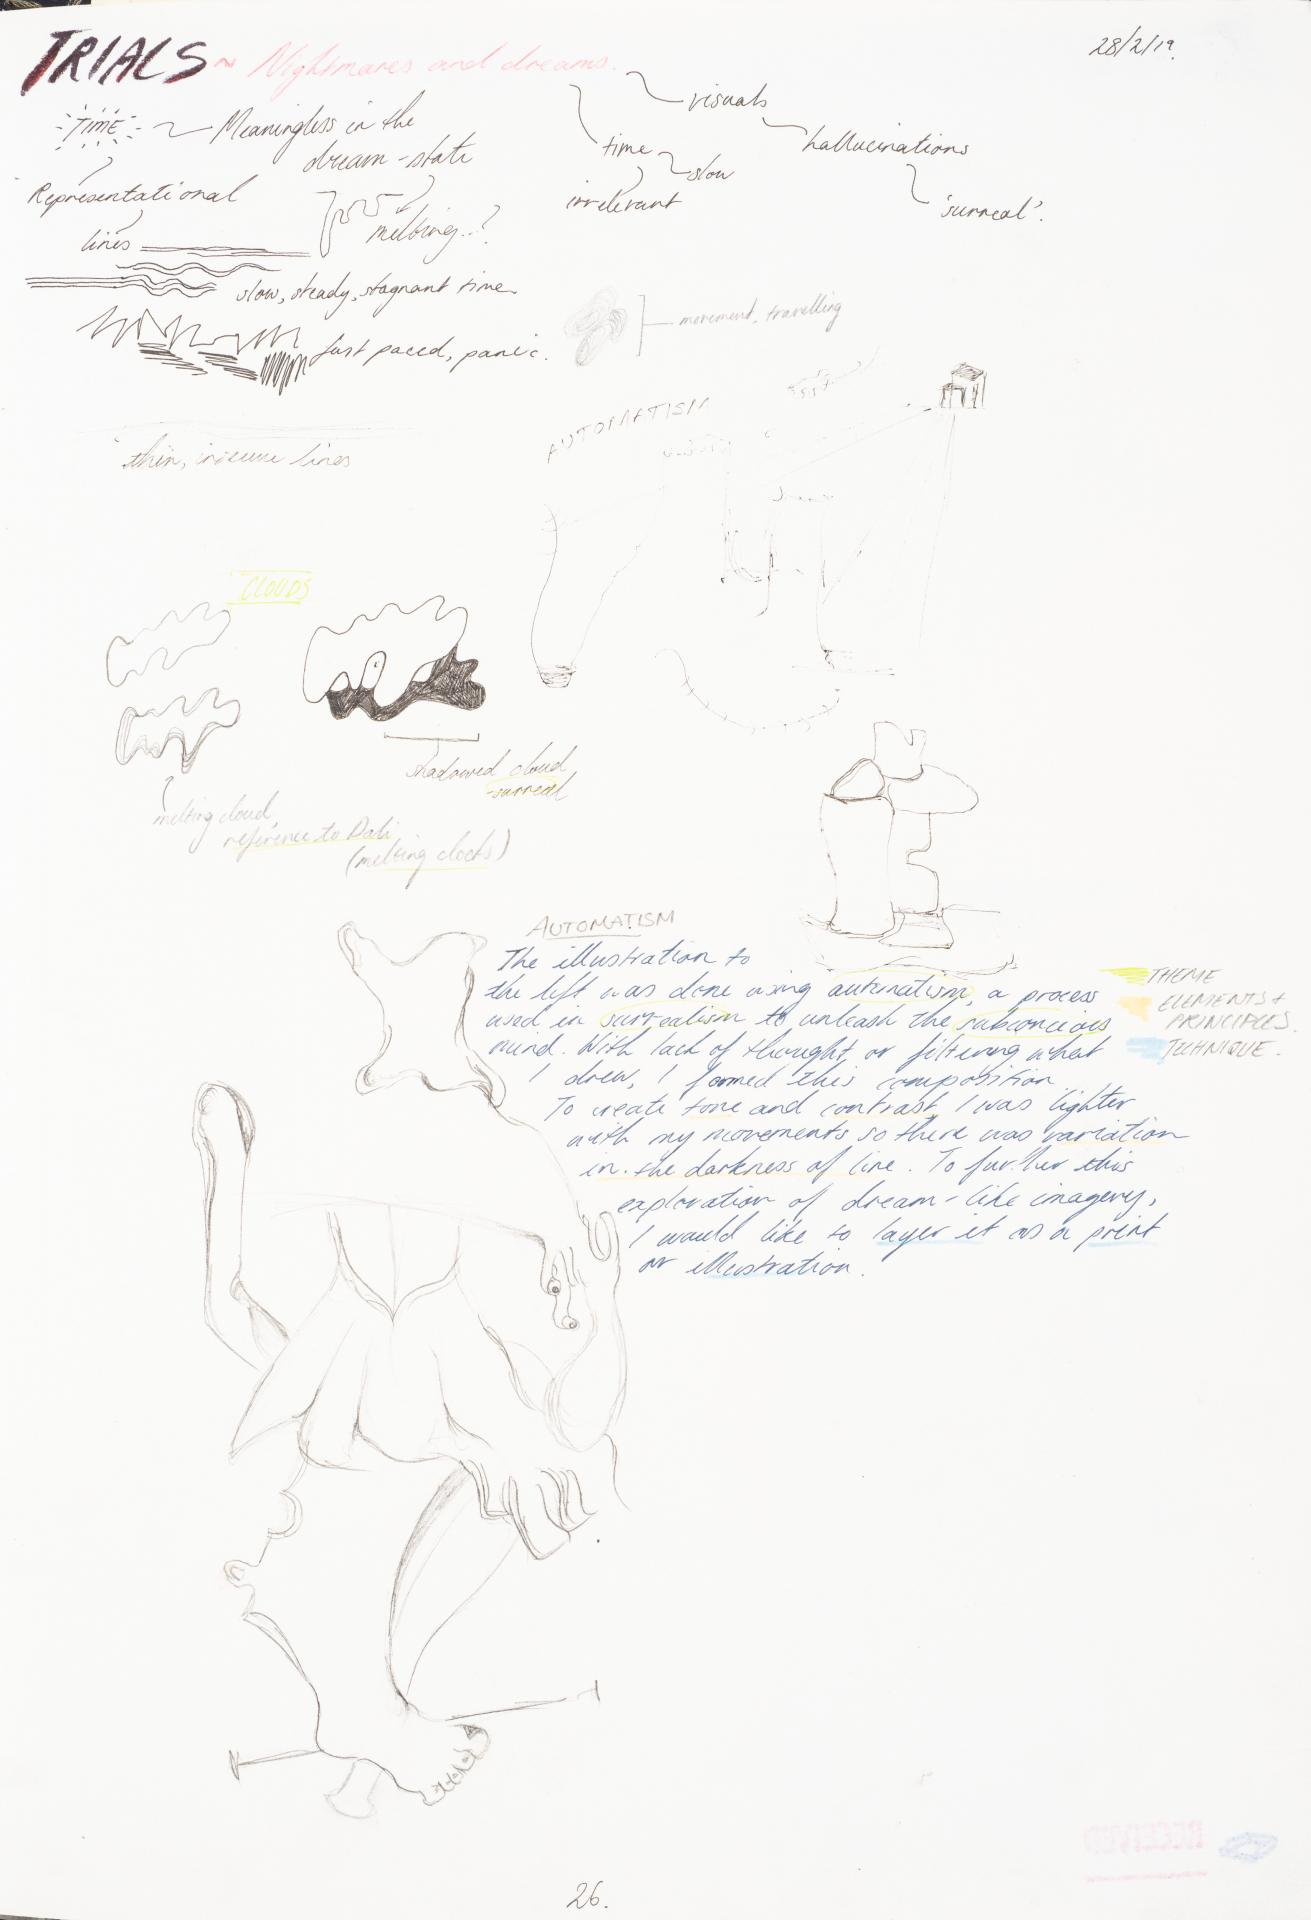 TRIALS ~ Nightmares and dreams.
28/2/19.
TIME
Meaningless in the
dream-state
melting..?
Representational
lines
slow, steady, stagnant time.
fast paced, panic.
thin, insecure lines
visuals
hallucinations
'surreal'.
time
slow
irrelevant
movement, travelling
AUTOMATISM
CLOUDS
shadowed cloud
-surreal
melting cloud,
reference to Dali
(melting clocks)
AUTOMATISM
The illustration to
the left was done using automatism, a process
used in surrealism to unleash the subconcious
mind. With lack of thought, or filtering what
I drew, I formed this composition
To create tone and contrast, I was lighter
with my movements so there was variation
in the darkness of line. To further this
exploration of dream-like imagery,
I would like to layer it as a print
or illustration.
THEME
ELEMENTS +
PRINCIPLES.
TECHNIQUE.
RECEIVED
26.